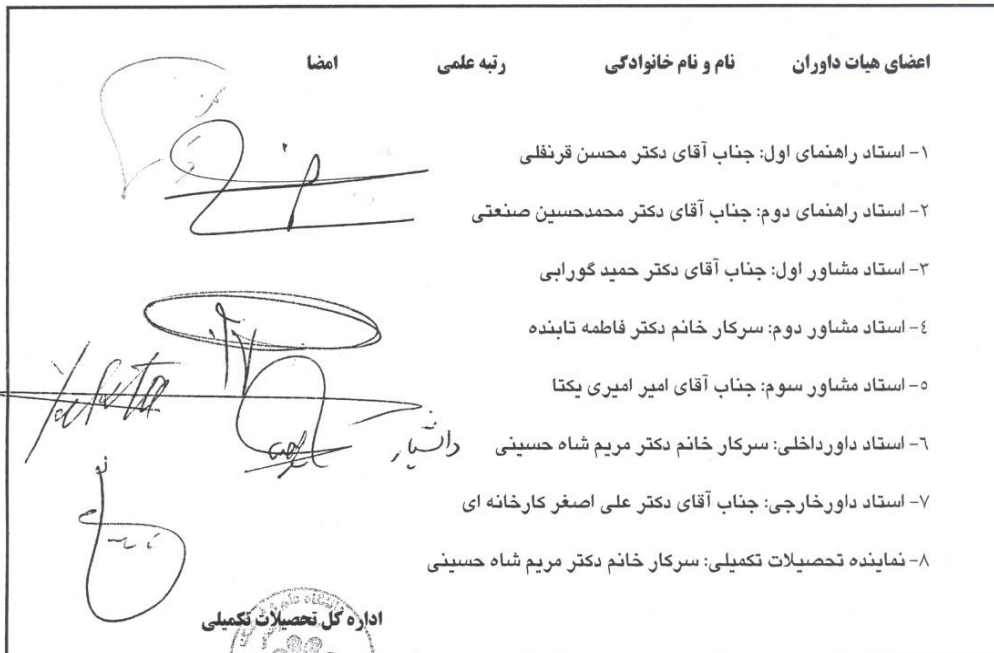 اعضای هیات داوران نام و نام خانوادگی رتبه علمی امضا
۱- استاد راهنمای اول: جناب آقای دکتر محسن قرنفلی
۲- استاد راهنمای دوم: جناب آقای دکتر محمدحسین صنعتی
۳- استاد مشاور اول: جناب آقای دکتر حمید گورابی
٤- استاد مشاور دوم: سرکار خانم دکتر فاطمه تابنده
٥- استاد مشاور سوم: جناب آقای امیر امیری یکتا
٦- استاد داورداخلی: سرکار خانم دکتر مریم شاه حسینی دانشیار
۷- استاد داورخارجی: جناب آقای دکتر علی اصغر کارخانه ای
۸- نماینده تحصیلات تکمیلی: سرکار خانم دکتر مریم شاه حسینی
اداره کل تحصیلات تکمیلی